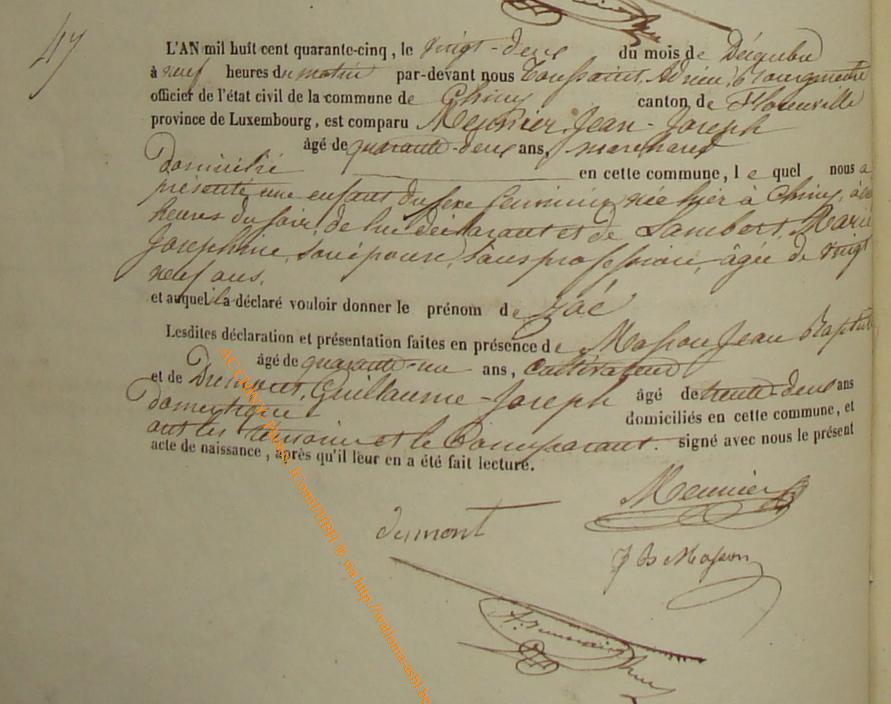 47
L'AN mil huit cent quarante-cinq, le vingt-deux du mois de Décembre
à neuf heures du matin par-devant nous Toussaint, Adrien,
officier de l'état civil de la commune de Chiny canton de Florenville
province de Luxembourg, est comparu Meunier, Jean-Joseph
âgé de quarante-deux ans, marchand
Domicilié en cette commune, le quel nous a
présenté une enfant du sexe féminin, née hier à Chiny, à
heures du soir, de lui déclarant et de Lambert, Marie
Josephine, son épouse, sans profession, âgée de vingt
neuf ans,
et auquel il a déclaré vouloir donner le prénom de Zoé
Lesdites déclaration et présentation faites en présence de Masson Jean Baptiste
âgé de quarante-un ans, cultivateur
et de Dumont, Guillaume-Joseph âgé de trente-deux ans
Domestique domiciliés en cette commune, et
ont les témoins et le Comparant signé avec nous le présent
acte de naissance, après qu'il leur en a été fait lecture.
Meunier
dumont
J Bs Masson